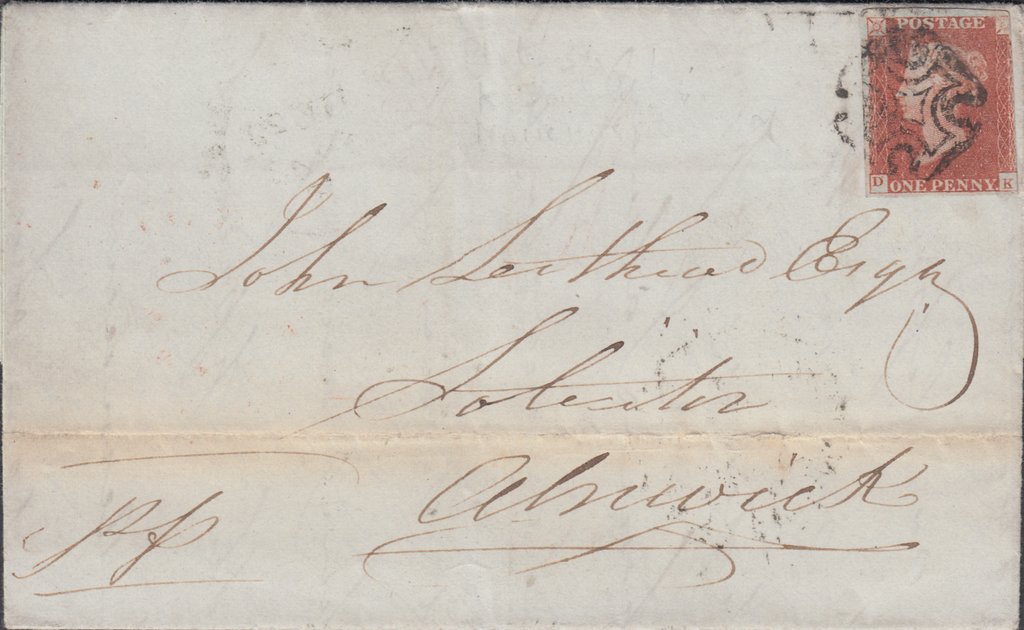 POSTAGE
D ONE PENNY. K
John Leithead Esqr
Solicitor
Alnwick
pp